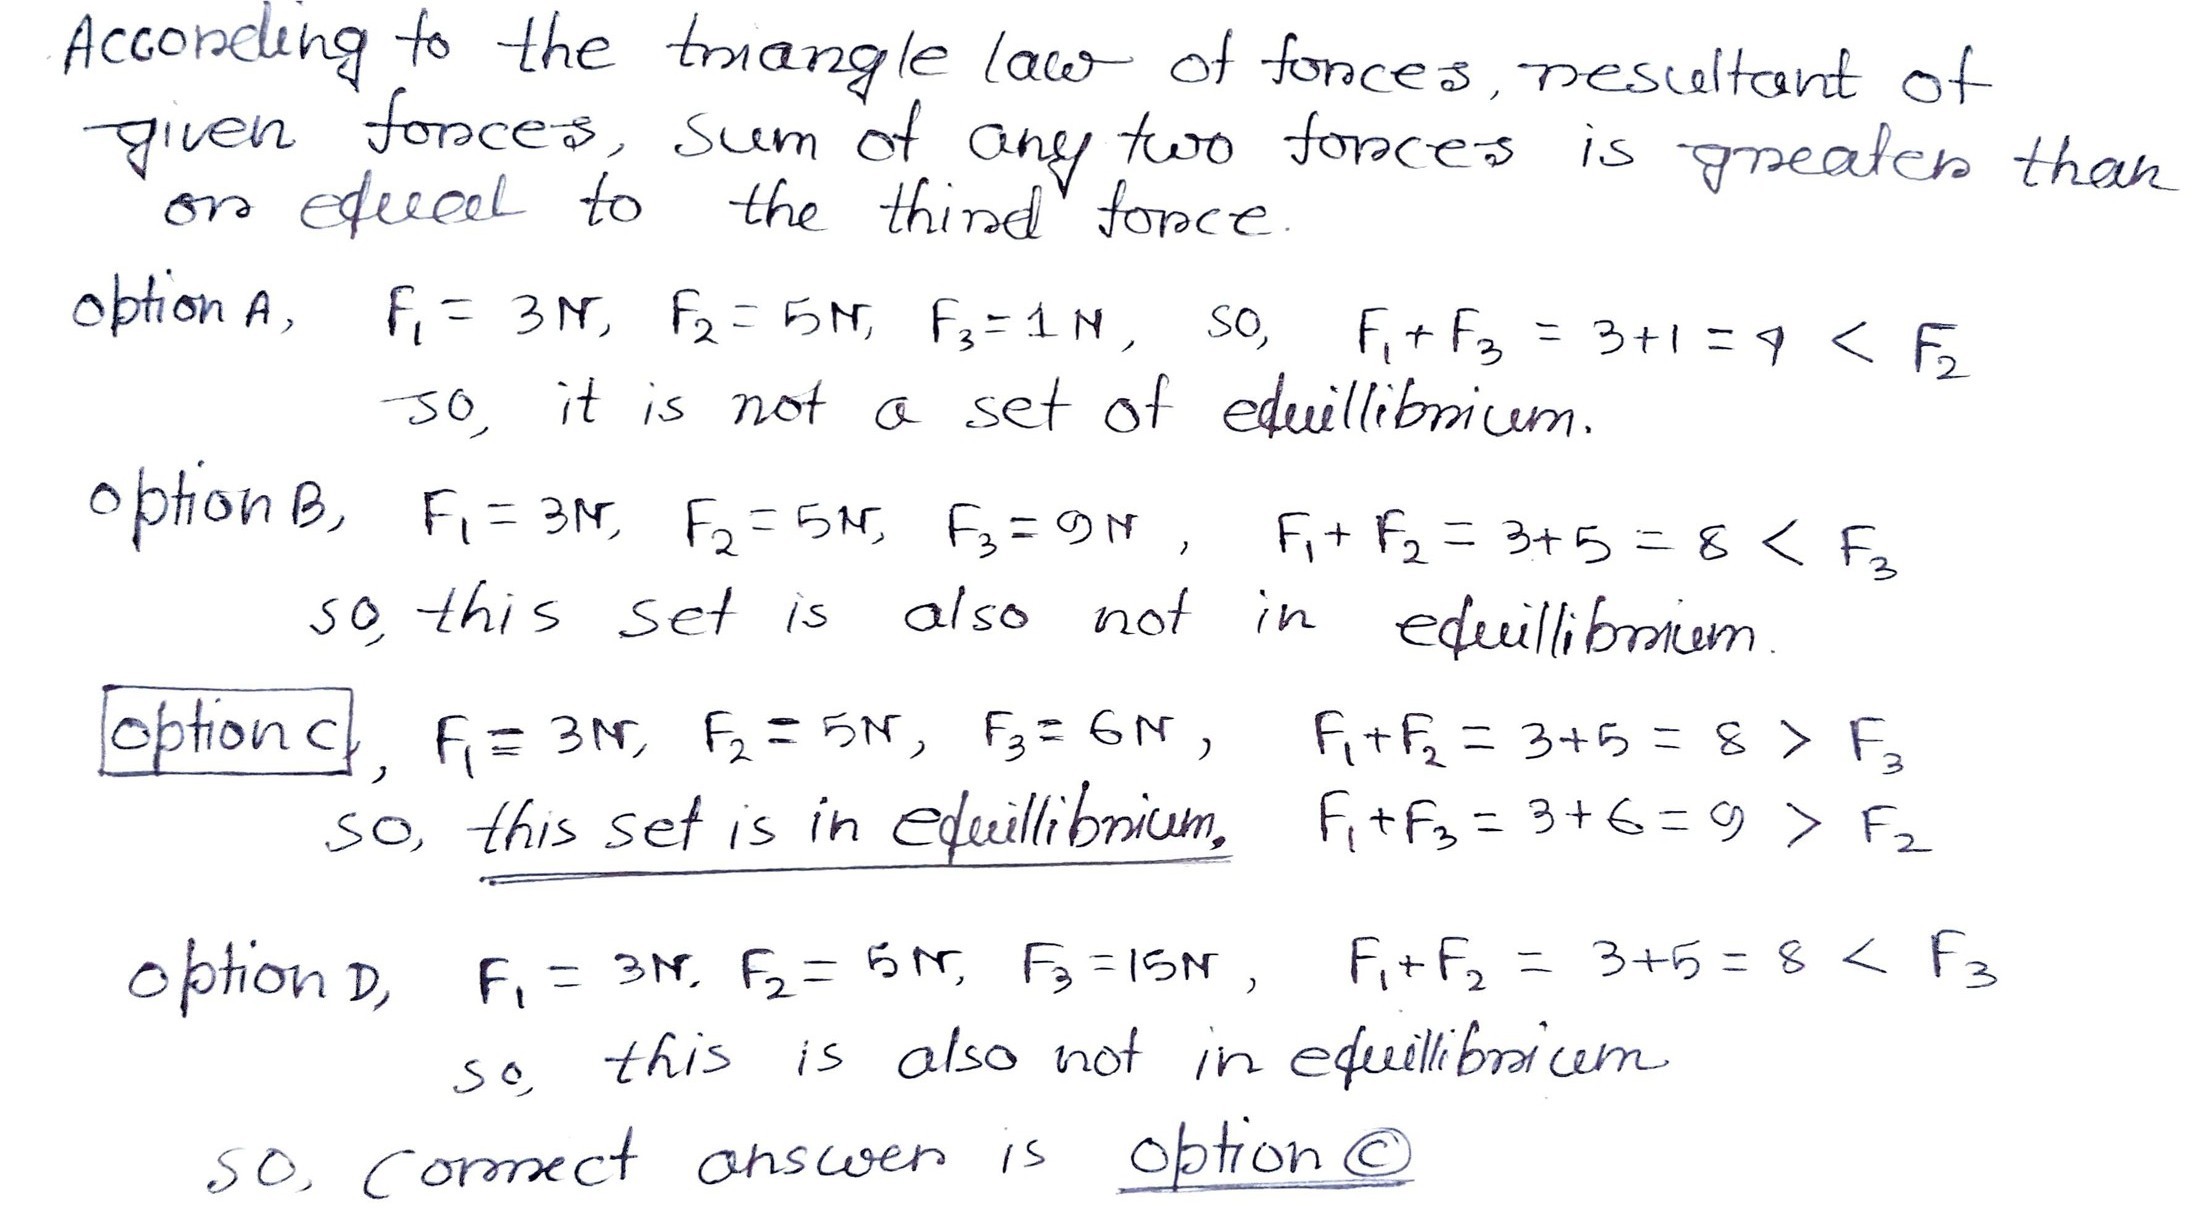 According to the triangle law of forces, resultant of
given forces, sum of any two forces is greater than
or equal to the third force.
option A, F₁ = 3N, F₂ = 5N, F₃ = 1N, so, F₁ + F₃ = 3+1 = 4 < F₂
so, it is not a set of equillibrium.
option B, F₁ = 3N, F₂ = 5N, F₃ = 9N, F₁ + F₂ = 3+5 = 8 < F₃
so, this set is also not in equillibrium.
option C, F₁ = 3N, F₂ = 5N, F₃ = 6N, F₁+F₂ = 3+5 = 8 > F₃
so, this set is in equillibrium. F₁+F₃ = 3+6 = 9 > F₂
option D, F₁ = 3N. F₂ = 5N, F₃ = 15N, F₁+F₂ = 3+5 = 8 < F₃
so, this is also not in equillibrium
so, correct answer is option ©